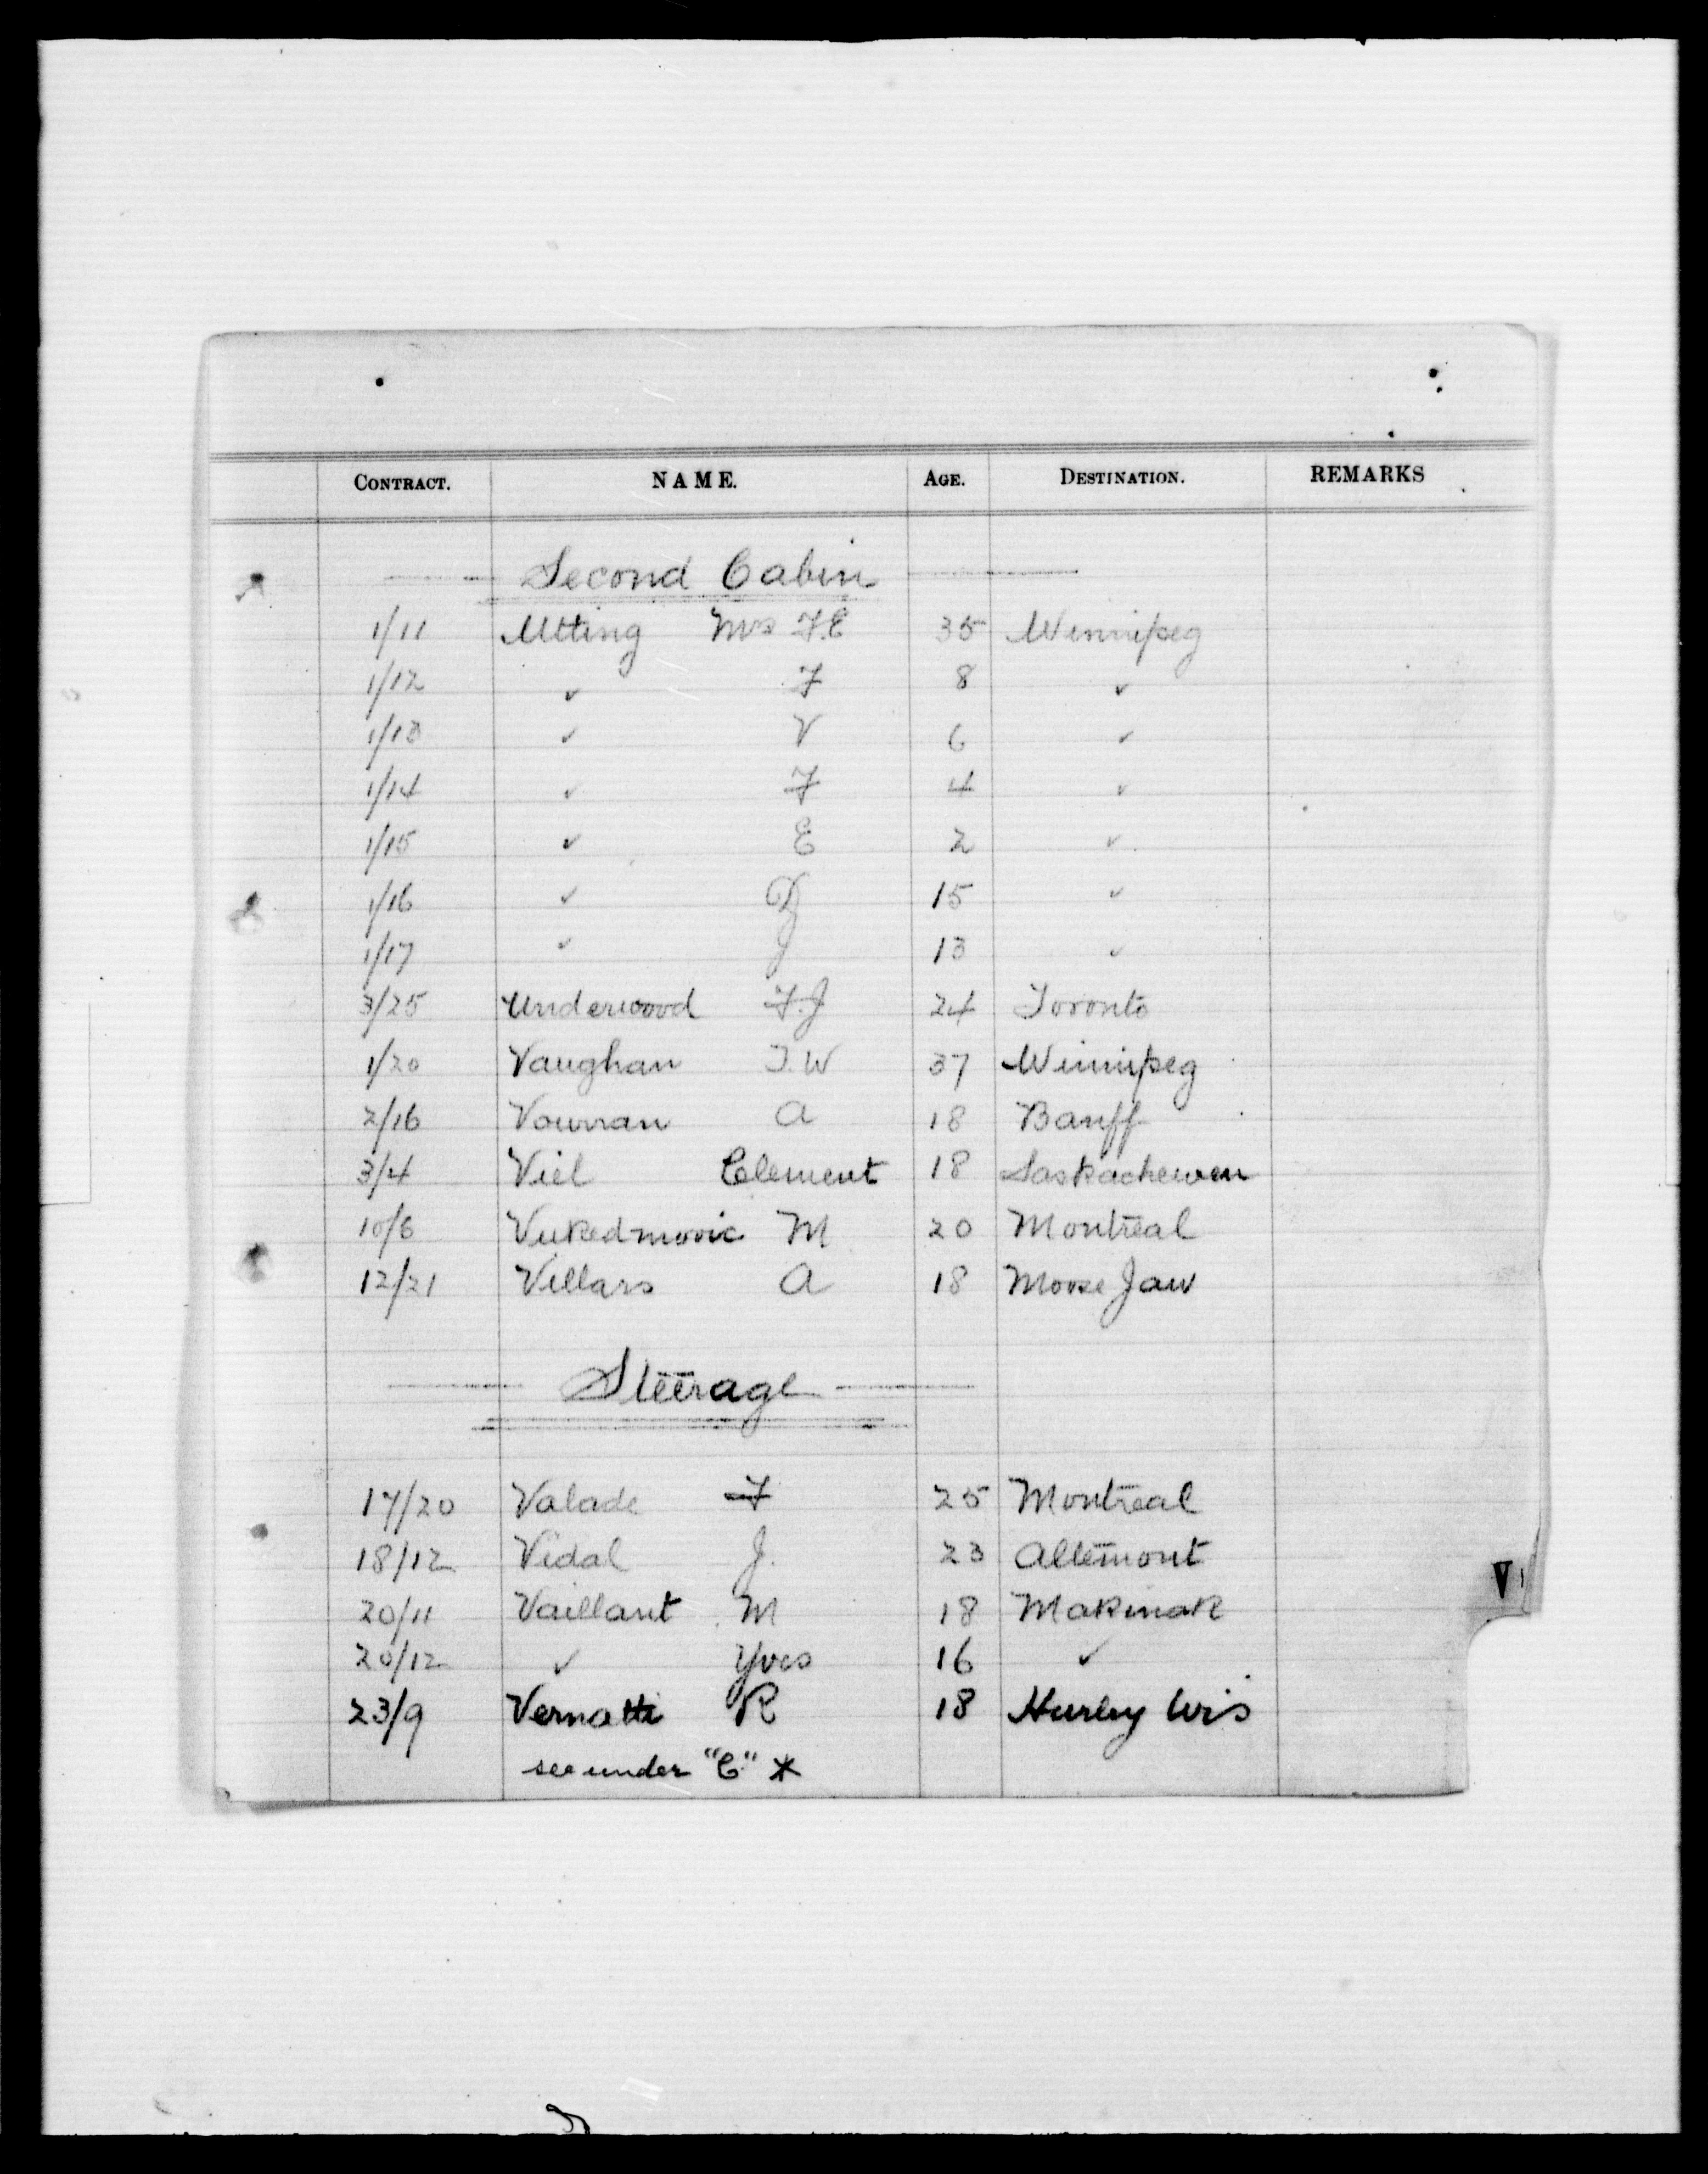 CONTRACT. NAME. AGE. DESTINATION. REMARKS
Second Cabin
1/11 Utting Mrs F.E 35 Winnipeg
1/12 ✓ F 8 ✓
1/13 ✓ V 6 ✓
1/14 ✓ F 4 ✓
1/15 ✓ E 2 ✓
1/16 ✓ D 15 ✓
1/17 ✓ J 13 ✓
3/25 Underwood F.J 24 Toronto
1/20 Vaughan T.W 37 Winnipeg
2/16 Vourran A 18 Banff
3/4 Viel Clement 18 Saskachewen
10/6 Vukedmovic M 20 Montreal
12/21 Villars A 18 Moose Jaw
Steerage
17/20 Valade F 25 Montreal
18/12 Vidal J. 23 Altemont
20/11 Vaillant M 18 Makinak
20/12 ✓ Yves 16 ✓
V
23/9 Vernatti R 18 Hurley Wis
see under "C" *